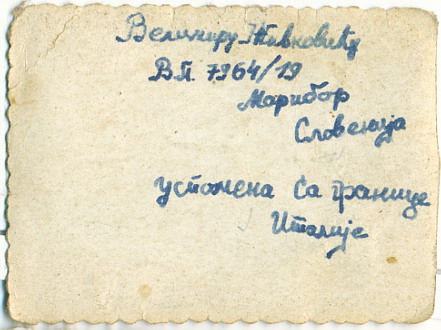 Велимиру Живковићу
В.П. 7964/19
Марибор
Словенија
успомена са границе
Италије